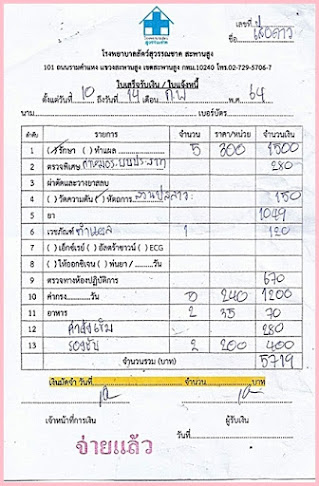 เลขที่
ชื่อ เสือดาว
โรงพยาบาลสัตว์สุวรรณชาด สะพานสูง
101 ถนนรามคำแหง แขวงสะพานสูง เขตสะพานสูง กทม.10240 โทร.02-729-5706-7
ใบเสร็จรับเงิน / ใบแจ้งหนี้
ตั้งแต่วันที่ 10 ถึงวันที่ 14 เดือน ก.พ พ.ศ 64
นาม เบอร์บัตร
ลำดับ รายการ จำนวน ราคา/หน่วย จำนวนเงิน
1 (/) รักษา ( ) ทำแผล 5 300 1500
2 ตรวจพิเศษ 280
3 ผ่าตัดและวางยาสลบ
4 ( ) วัดความดัน ( ) หัตถการ สวนปัสสาวะ 150
5 ยา 1049
6 เวชภัณฑ์ ทำแผล 1 120
7 ( ) เอ็กซ์เรย์ ( ) อัลตร้าซาวน์ ( ) ECG
8 ( ) ให้ออกซิเจน ( ) พ่นยา /..........วัน
9 ตรวจทางห้องปฏิบัติการ 670
10 ค่ากรง..........วัน 5 240 1200
11 อาหาร 2 35 70
12 280
13 รองซับ 2 200 400
จำนวนรวม (บาท) 5719
เงินมัดจำ วันที่ จำนวน บาท
เจ้าหน้าที่การเงิน ผู้รับเงิน
จ่ายแล้ว วันที่